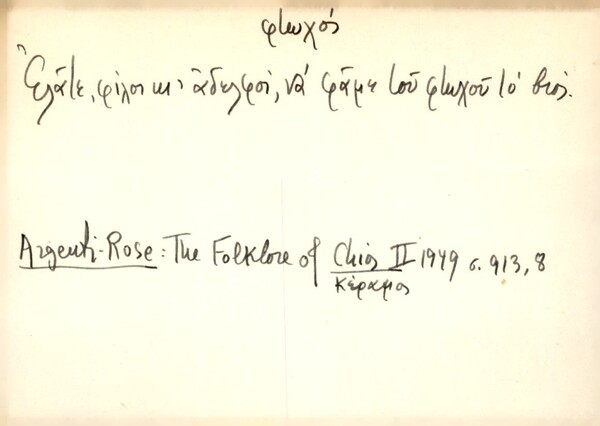 φτωχός
Ἐλᾶτε, φίλοι κι' ἀδελφοί, νά φᾶμε τοῦ φτωχοῦ τό βιός.
Argenti-Rose: The Folklore of Chios II 1949 σ. 913, 8
Κέραμος